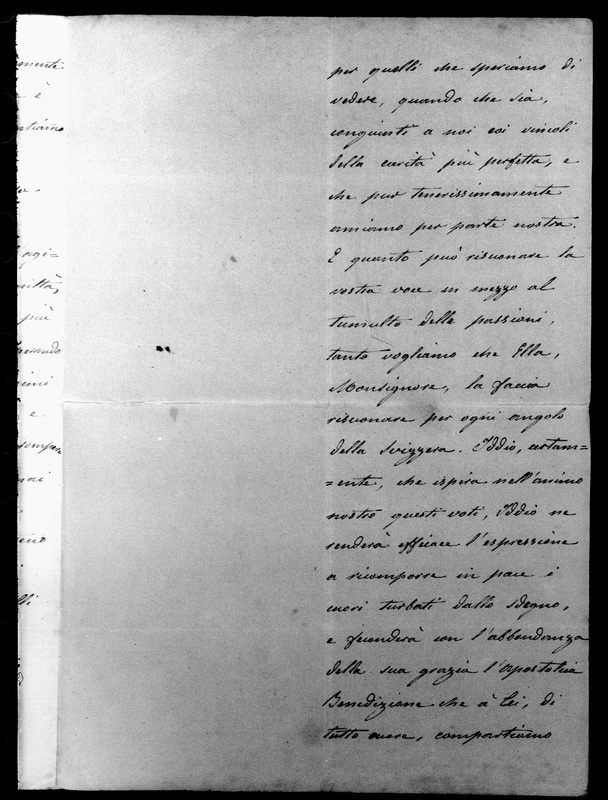 mente
è
ntiamo
agi=
più
e
per quelli che speriamo di
vedere, quando che sia,
congiunti a noi coi vincoli
della carità più perfetta, e
che pur tenerissimamente
amiamo per parte nostra.
E quanto può risuonare la
vostra voce in mezzo al
tumulto delle passioni,
tanto vogliamo che Ella,
Monsignore, la faccia
risuonare per ogni angolo
della Svizzera. Iddio, certam=
=ente, che ispira nell'animo
nostro questi voti, Iddio ne
renderà efficace l'espressione
a ricomporre in pace i
cuori turbati dallo sdegno,
e feconderà con l'abbondanza
della sua grazia l'Apostolica
Benedizione che a Lei, di
tutto cuore, compartiamo